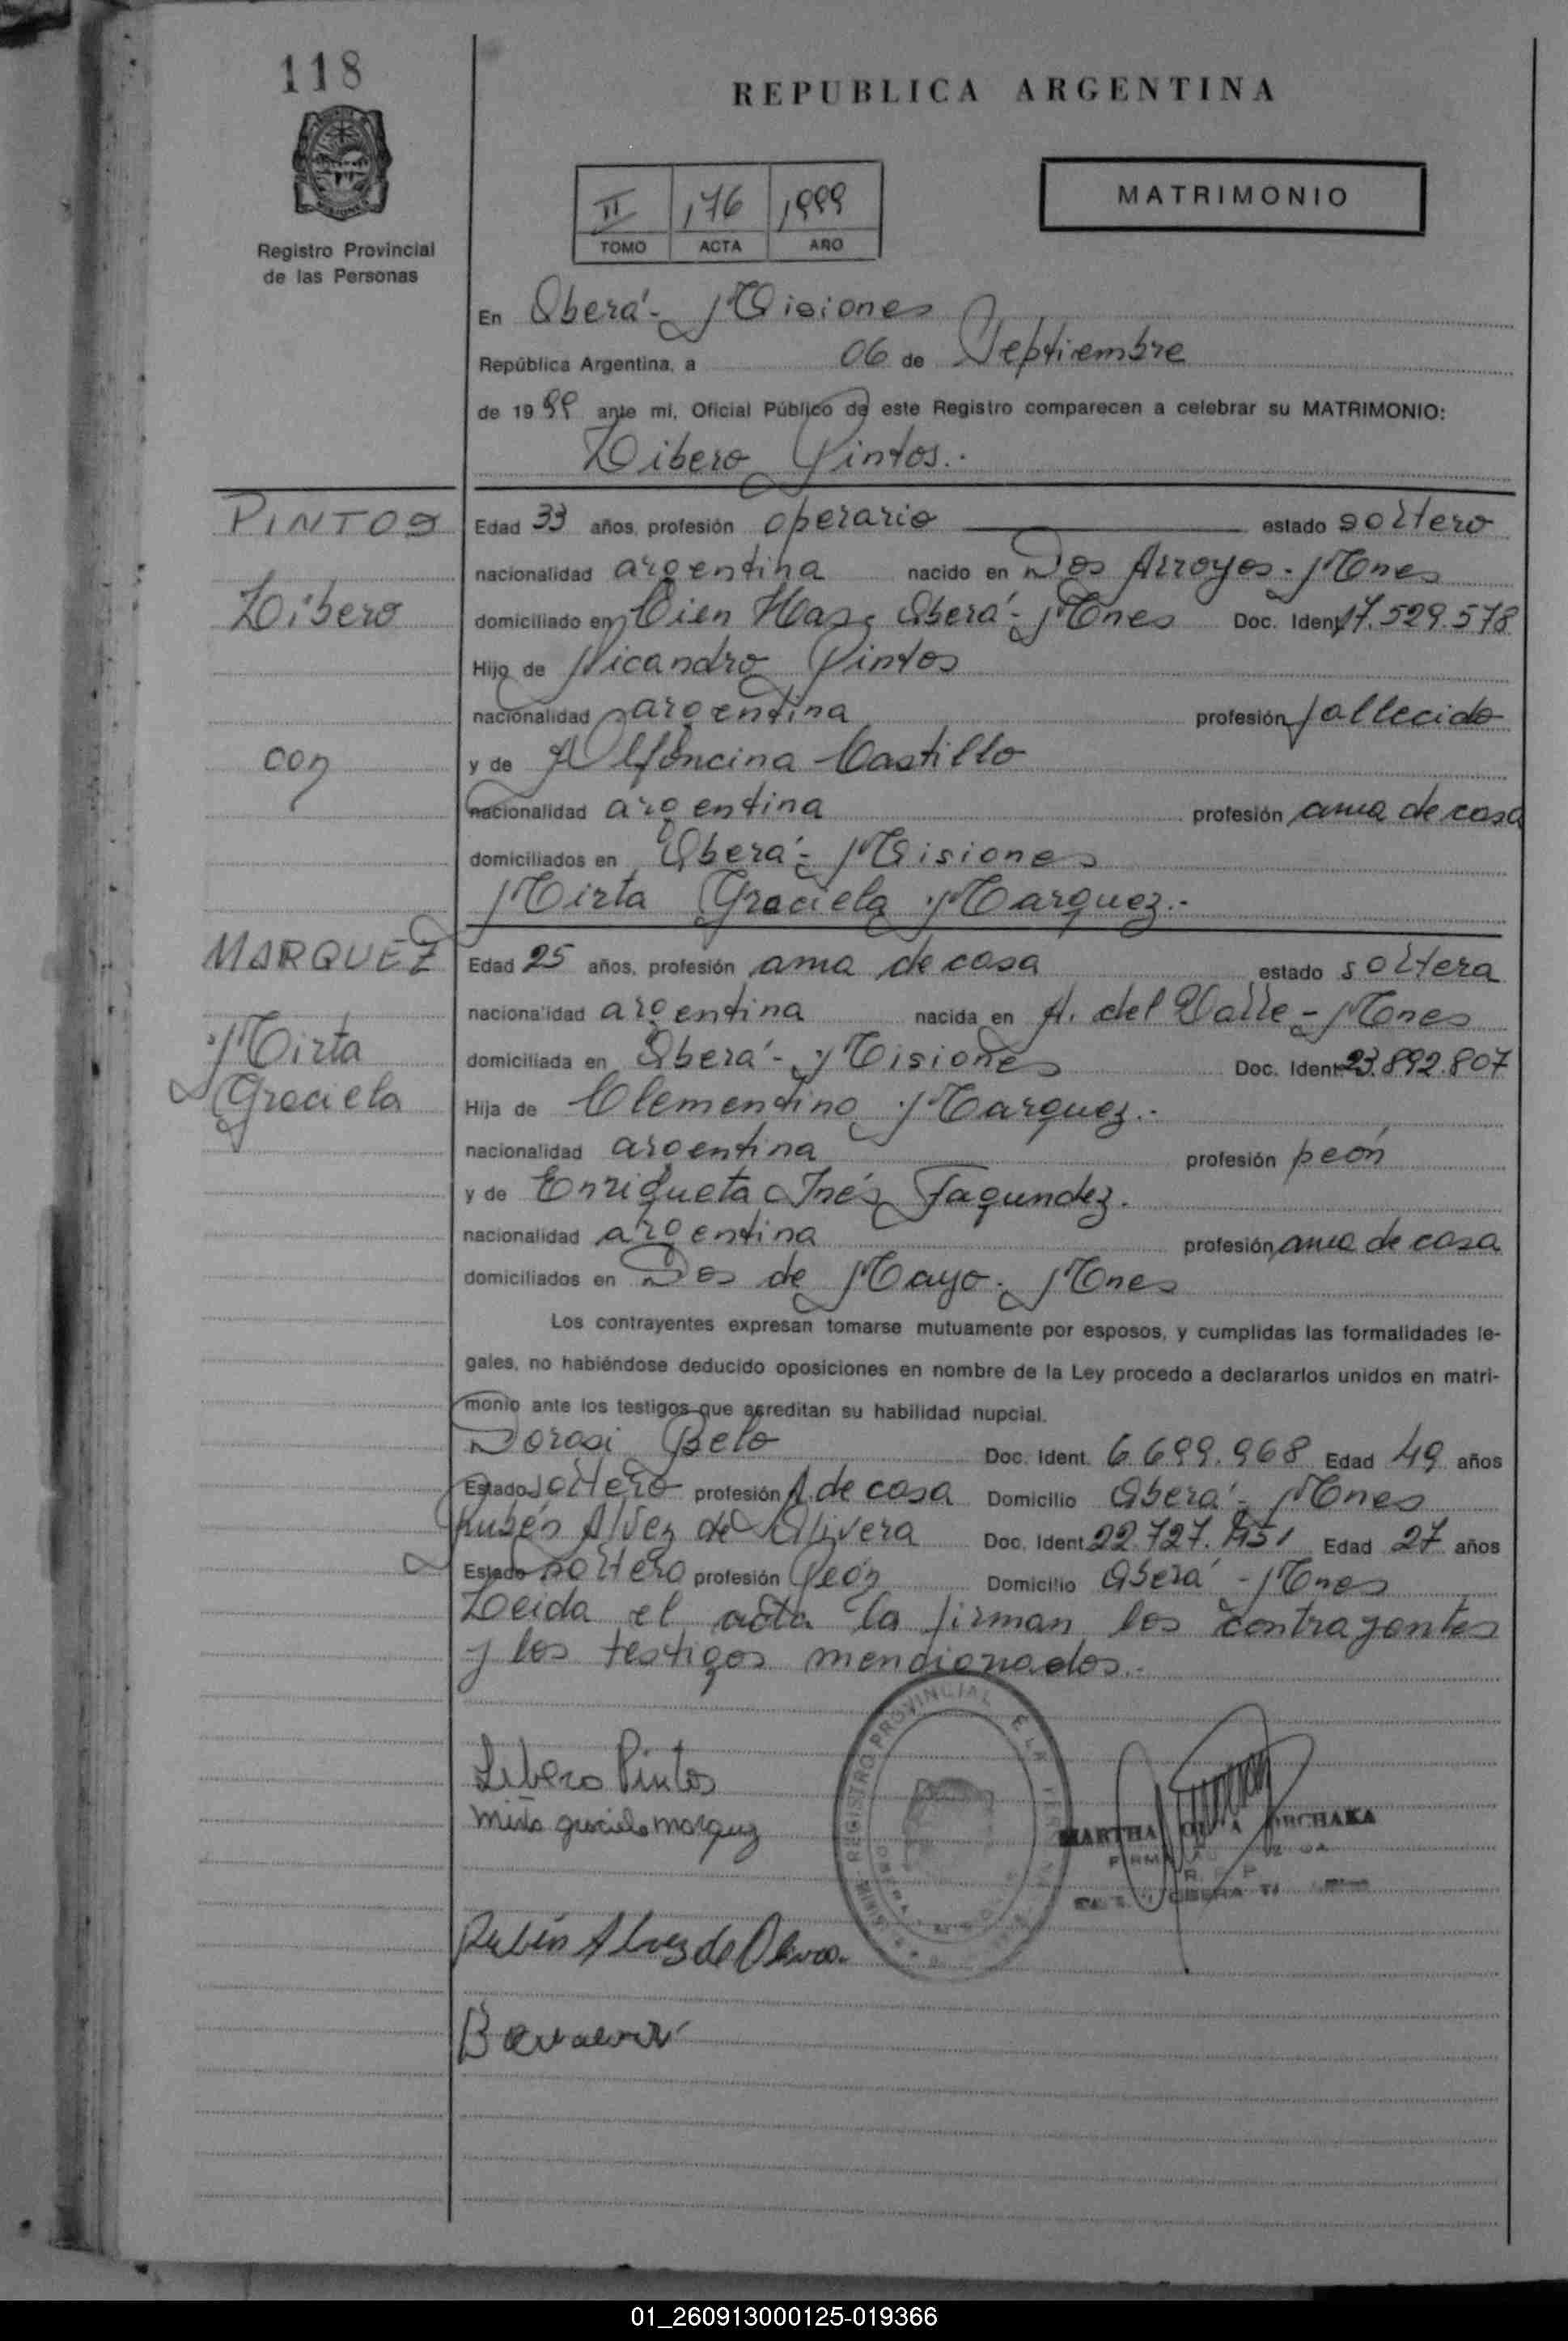 118
REPUBLICA ARGENTINA
MATRIMONIO
II 176 1999
TOMO ACTA AÑO
Registro Provincial
de las Personas
En Oberá - Misiones
República Argentina, a 06 de Septiembre
de 1999 ante mi, Oficial Público de este Registro comparecen a celebrar su MATRIMONIO:
Libero Pintos.-
PINTOS
Libero
con
Edad 33 años, profesión operario estado soltero
nacionalidad argentina nacido en Dos Arroyos - Mnes
domiciliado en Cien Has, Oberá - Mnes Doc. Ident 17.529.578
Hijo de Nicandro Pintos
nacionalidad argentina profesión fallecido
y de Alfoncina Castillo
nacionalidad argentina profesión ama de casa
domiciliados en Oberá - Misiones
Mirta Graciela Marquez.-
MARQUEZ
Mirta
Graciela
Edad 25 años, profesión ama de casa estado soltera
nacionalidad argentina nacida en A. del Valle - Mnes
domiciliada en Oberá - Misiones Doc. Ident 23.892.807
Hija de Clementino Marquez.-
nacionalidad argentina profesión peón
y de Enriqueta Inés Fagundez.
nacionalidad argentina profesión ama de casa
domiciliados en Dos de Mayo - Mnes
Los contrayentes expresan tomarse mutuamente por esposos, y cumplidas las formalidades le-
gales, no habiéndose deducido oposiciones en nombre de la Ley procedo a declararlos unidos en matri-
monio ante los testigos que acreditan su habilidad nupcial.
Dorasi Belo Doc. Ident. 6.699.968 Edad 49 años
Estado soltero profesión A. de casa Domicilio Oberá - Mnes
Rubén Alvez de Olivera Doc. Ident 22.727.151 Edad 27 años
Estado soltero profesión Peón Domicilio Oberá - Mnes
Leida el acta la firman los contrayentes
y los testigos mencionados.-
Libero Pintos
Mirta graciela marquez
REGISTRO PROVINCIAL
MARTHA
Rubén Alvez de Olivera.
01_260913000125-019366